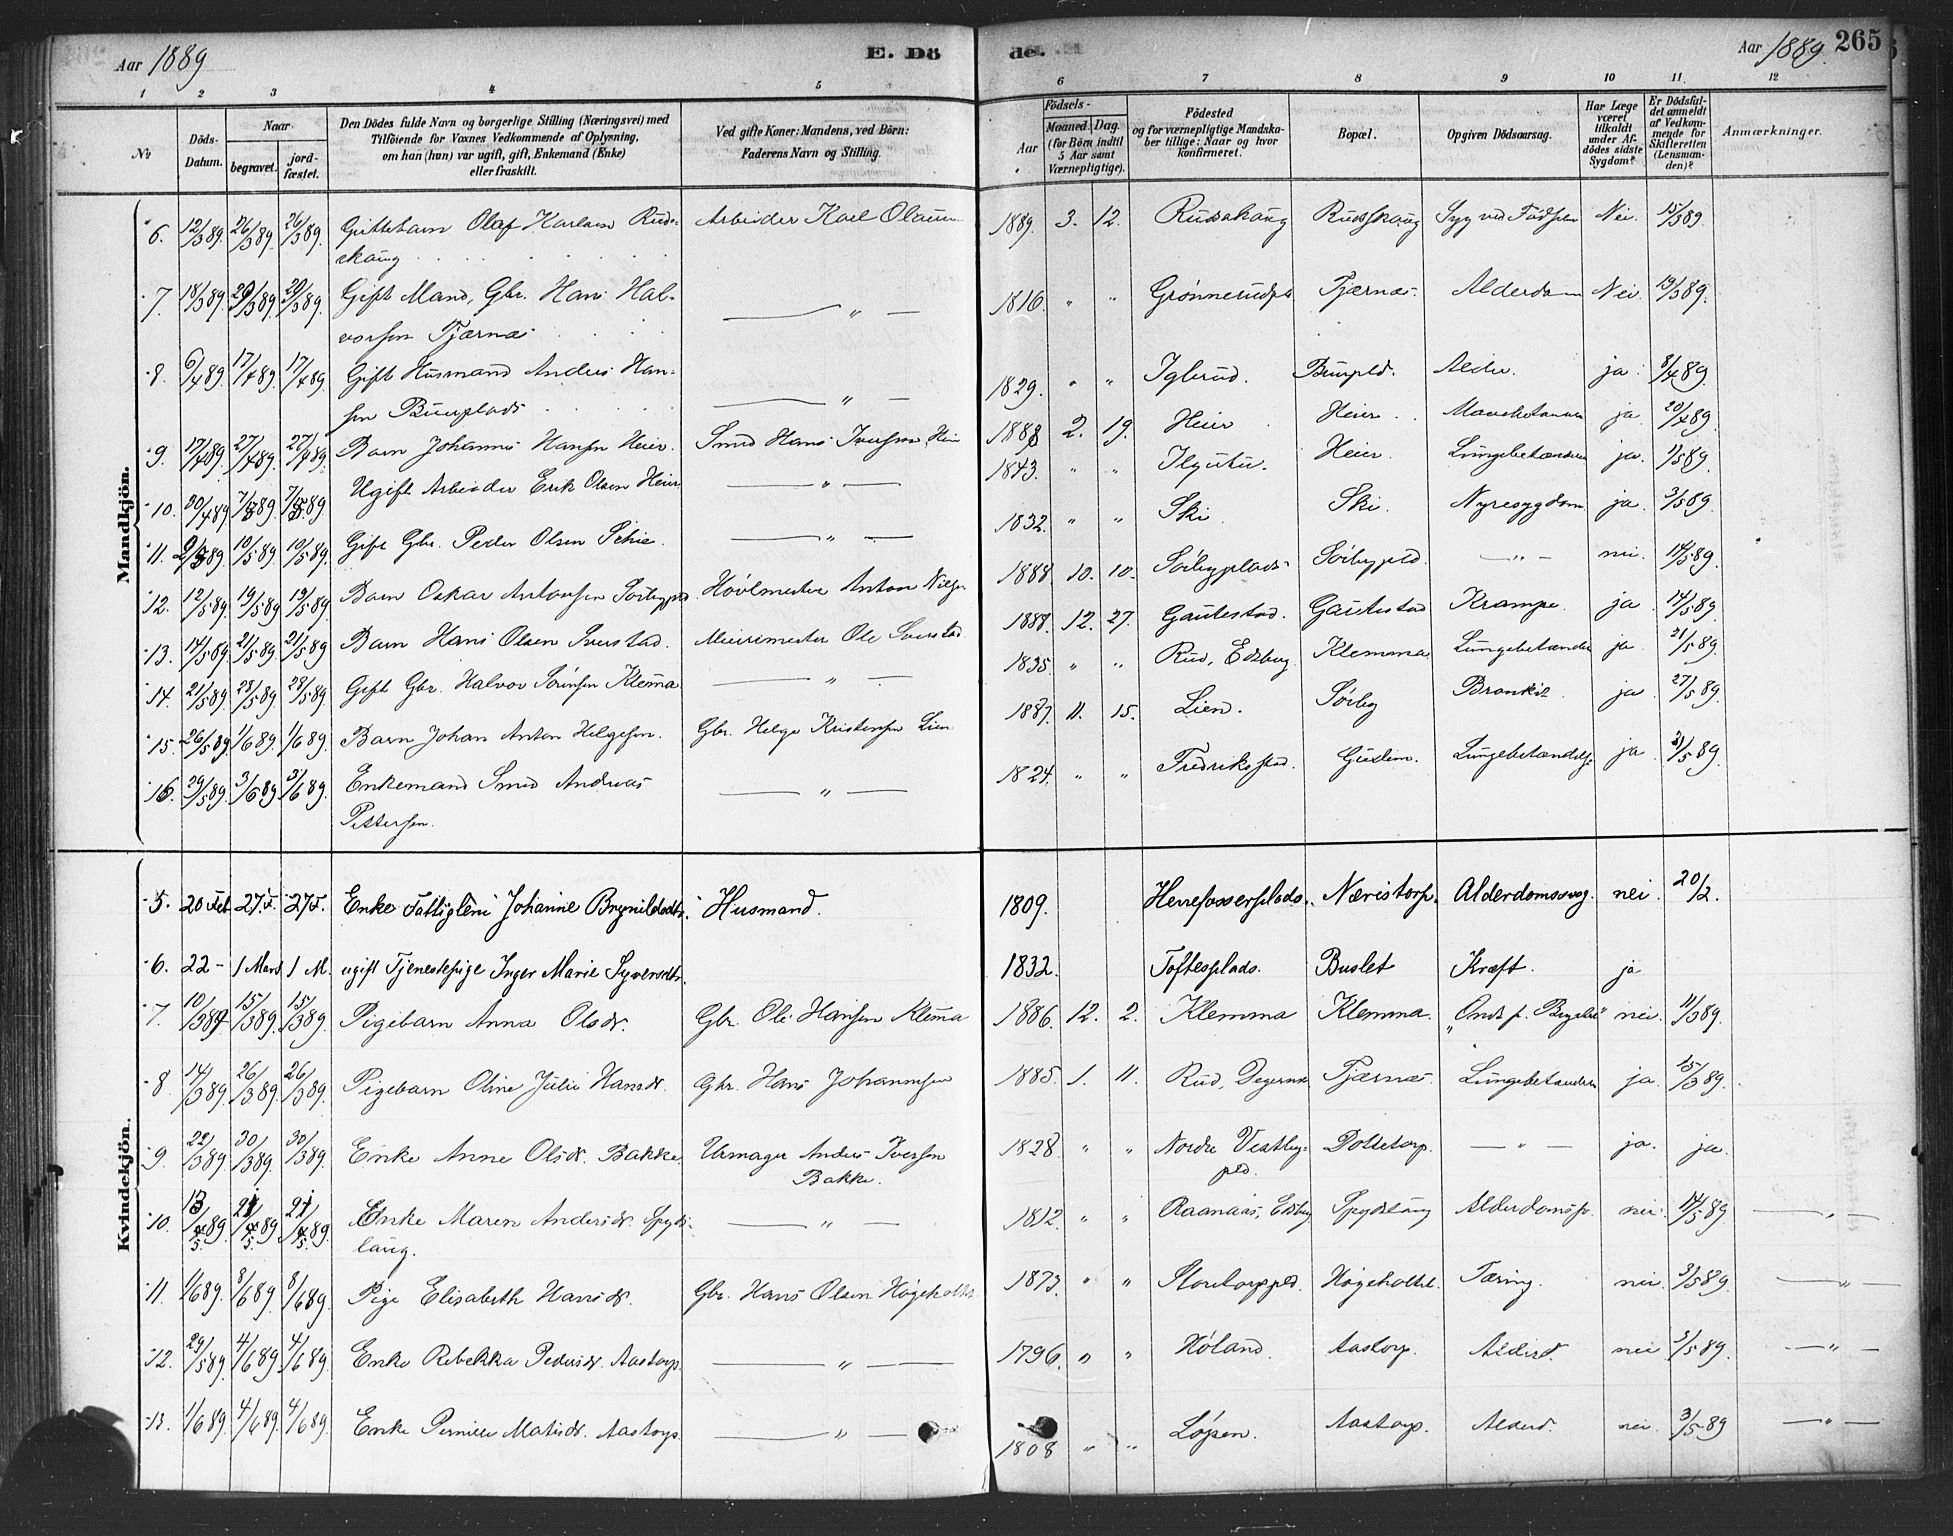 Aar 1889
E. Dö de.
Aar 1889. 265
1 2 3 4 5 6 7 8 9 10 11 12
No
Döds-Datum.
Naar
begravet.
jord-fæstet.
Den Dödes fulde Navn og borgerlige Stilling (Næringsvei) med
Tilföiende for Voxnes Vedkommende af Oplysning,
om han (hun) var ugift, gift, Enkemand (Enke)
eller fraskilt.
Ved gifte Koner: Mandens, ved Börn:
Faderens Navn og Stilling.
Födsels-
Aar
Maaned. Dag.
(for Börn indtil
5 Aar samt
Værnepligtige).
Födested
og for værnepligtige Mandska-
ber tillige: Naar og hvor
konfirmeret.
Bopæl.
Opgiven Dödsaarsag.
Har Læge
været
tilkaldt
under Af-
dödes sidste
Sygdom?
Er Dödsfal-
det anmeldt
af Vedkom-
mende for
Skifteretten
(Lensman-
den)?
Anmærkninger.
Mandkjön.
6. 12/3 89. 26/3 89. 26/3 89. Guttebarn Olaf Karlsen Ruds- Arbeider Karl 1889. 3. 12. Rudsskaug Rudsskaug Syg ved Fødslen Nei. 15/3 89.
skaug
7. 18/3 89. 29/3 89. 29/3 89. Gift Mand, Gbr. Hans Hal- — " — 1816. " " Grønnerudpld Tjærnæs. Alderdom Nei. 19/3 89.
vorsen Tjærnæs
8. 6/4 89. 17/4 89. 17/4 89. Gift Husmand Anders Han- 1829. " " Iglerud. Buerpld. Alder. ja. 8/4 89.
sen Buerplads — " —
9. 17/4 89. 27/4 89. 27/4 89. Barn Johannes Hansen Heier. Smed Hans Iversen Heier 1888 2. 19. Heier Heier. ja. 20/4 89.
10. 30/4 89 7/5 89. 7/5 89 Ugift Arbeider Erik Olsen Heier. — " — 1843. " " Heier. Lungebetændelse ja. 1/5 89.
11. 2/5 89 10/5 89. 10/5 89. Gift Gbr. Peder Olsen Schie. — " — 1832. " " Ski. Ski. Nyresygdom ja. 3/5 89.
12. 12/5 89. 19/5 89. 19/5 89. Barn Oskar Antonsen Sørbypld Høvlmester Anton Nilsen 1888. 10. 10. Sørbyplads Sørbypld — " — nei. 14/5 89.
13. 14/5 89. 21/5 89. 21/5 89 Barn Hans Olsen Sverstad. Meierimester Ole Sverstad. 1888. 12. 27. Gautestad. Gautestad Krampe. ja 14/5 89.
14. 21/5 89. 28/5 89. 28/5 89. Gift Gbr. Halvor Sørensen Klemma — " — 1835. " " Rud, Edsberg Klemma Lungebetændelse ja. 21/5 89.
15. 26/5 89. 1/6 89. 1/6 89. Barn Johan Anton Helgesen. Gbr. Helge Kristensen Lien 1887. 11. 15. Lien. Sørby Bronkit. ja. 27/5 89.
16. 29/5 89. 3/6 89. 3/6 89. Enkemand Smed Andreas — " — 1824. " " Fredriksstad. Gudim. Lungebetændelse ja. 31/5 89.
Pettersen.
Kvindekjön.
5. 20 Feb. 27. F. 27 F. Enke Fattiglem Johanne Brynildsdtr. Husmand. 1809. Herrefosserplads. Næristorp. Alderdomssvag. nei. 20/2.
6. 22 – 1 Mars 1 M. ugift Tjenestepige Inger Marie Syversdtr. 1832. Toftesplads. Buslet Kræft. ja
7. 10/3 89. 15/3 89. 15/3 89. Pigebarn Anna Olsdr. Gbr. Ole Hansen Klemma 1886. 12. 2. Klemma Klemma. nei. 11/3 89.
8. 14/3 89. 26/3 89. 26/3 89. Pigebarn Oline Julie Hansdr. Gbr. Hans Johannesen 1885. 1. 11. Rud, Degernæs Tjærnæs. Lungebetændelse ja. 15/3 89.
9. 22/3 89. 30/3 89. 30/3 89. Enke Anne Olsdr. Bakke. Urmager Anders Iversen 1828. " " Nordre Vestby- Dottetorp. — " — ja. ja.
Bakke. pld.
10. 13/5 89. 21/5 89 21/5 89. Enke Maren Andersdr. Spyds- — " — 1812. " " Raanaas, Edsberg Spydslaug Alderdomssv. nei. 14/5 89 — " —
laug.
11. 1/6 89. 8/6 89. 8/6 89. Pige Elisabeth Hansdr. Gbr. Hans Olsen Høgeholtet 1873. " " Storetorppld. Høgeholtet. Tæring. nei. 3/5 89. — " —
12. 29/5 89. 4/6 89. 4/6 89. Enke Rebekka Pedersdr. Aastorp. — " — 1796. " " Høland. Aastorp. Alderd. nei 3/5 89. — " —
13. 1/6 89. 4/6 89. 4/6 89. Enke Pernille Matisdr. Aastorp. — " — 1808 " " Løpsen. Aastorp. Alderd. nei. 3/5 89 — " —